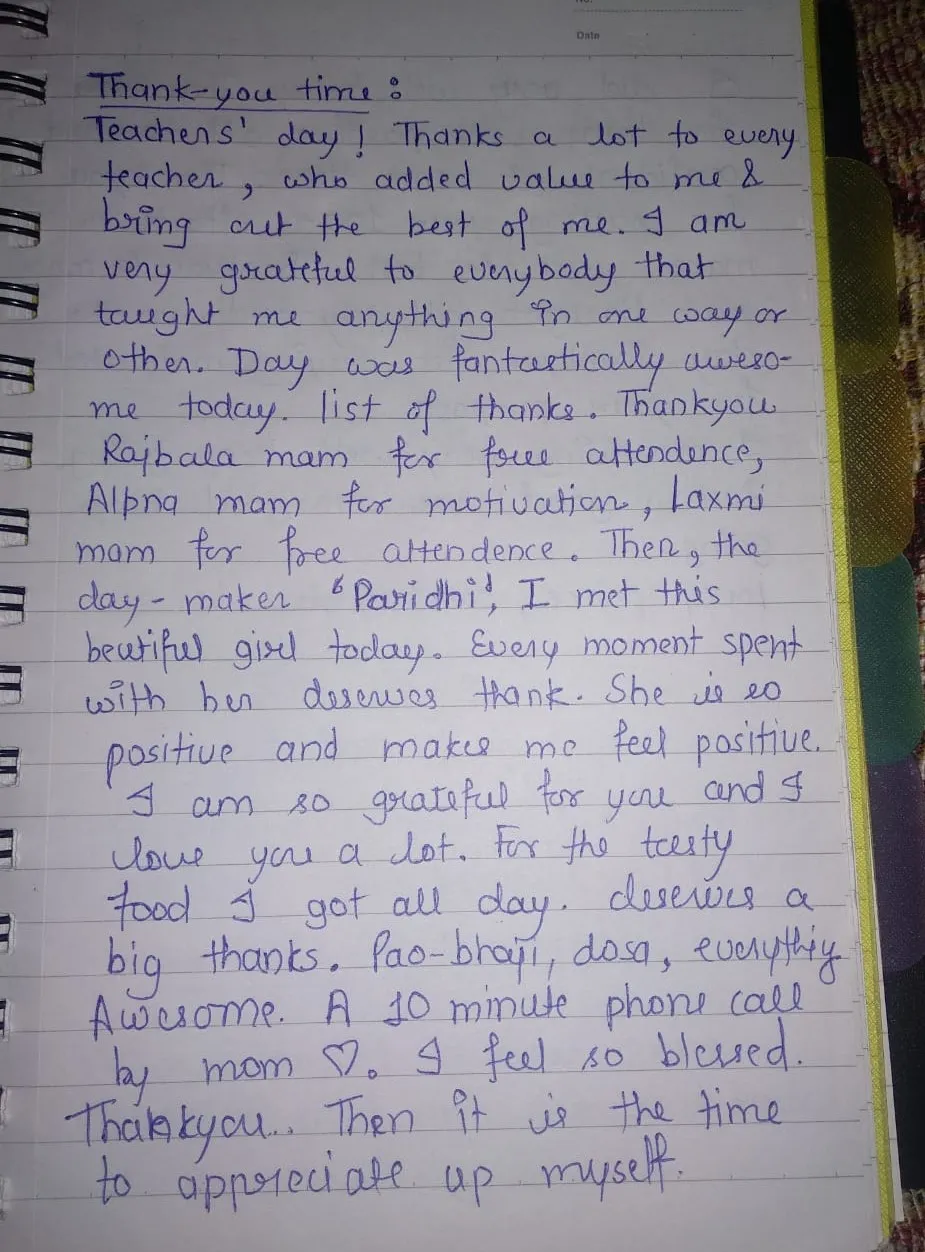 No.
Date
Thank-you time :
Teachers' day! Thanks a lot to every
teacher, who added value to me &
bring out the best of me. I am
very grateful to everybody that
taught me anything in one way or
other. Day was fantastically aweso-
me today. list of thanks. Thankyou
Rajbala mam for free attendence,
Alpna mam for motivation, Laxmi
mam for free attendence. Then, the
day-maker 'Paridhi', I met this
beutiful girl today. Every moment spent
with her deserves thank. She is so
positive and makes me feel positive.
I am so grateful for you and I
love you a lot. For the tasty
food I got all day. deserves a
big thanks. Pao-bhaji, dosa, everythig
Awesome. A 10 minute phone call
by mom ♡. I feel so blessed.
Thankyou.. Then it is the time
to appreciate up myself.